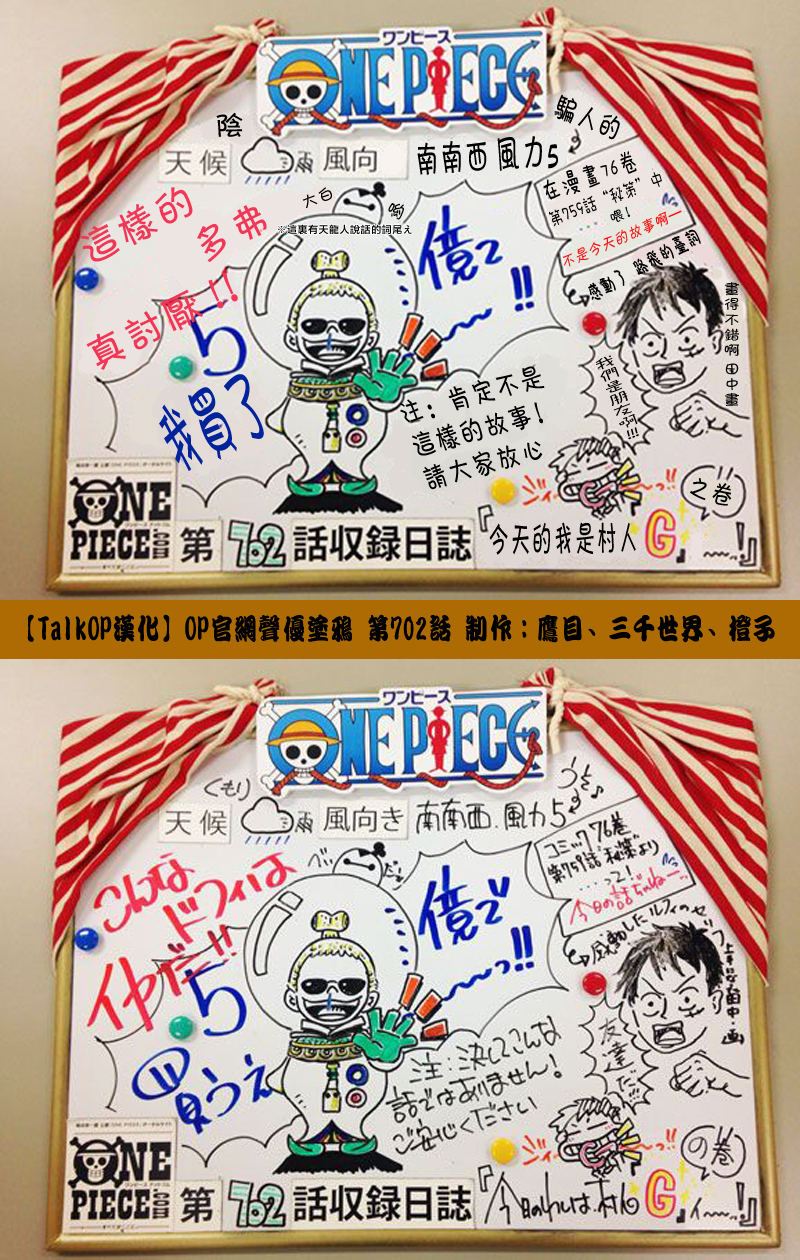 ワンピース
ONE PIECE
陰
騙人的
天候
雨
風向
南南西 風力5
在漫畫76卷
第759話“秘策”中
... 喂!
不是今天的故事啊—
這樣的
多弗
真討厭!!
大白
※這裏有天龍人說話的詞尾ぇ
億で
~!!
感動了 路飛的臺詞
畫得不錯啊 田中畫
5
我買了
我們是朋友啊!!!
注: 肯定不是
這樣的故事!
請大家放心
ジィー
~っ!!
之卷
ONE
PIECE.COM
ワンピース ドットコム
第702話収録日誌
『今天的我是村人G』
~!!
【TalkOP漢化】OP官網聲優塗鴉 第702話 制作：鷹目、三千世界、橙子
ワンピース
ONE PIECE
くもり
うそ♪
天候
雨
風向き
南南西.風力5
コミック76巻
第759話“秘策”より
...って!
今日の話じゃねー
こんな
ドフィは
イヤだ!!
億で
~っ!!
感動したルフィのセリフ
上手いな田中・画
5
買うえ
友達だ
注:決してこんな
話ではありません!
ご安心ください
ジィー
~っ!!
の巻
ONE
PIECE.COM
ワンピース ドットコム
第702話収録日誌
『今日のわしは村人G』
イ~!!